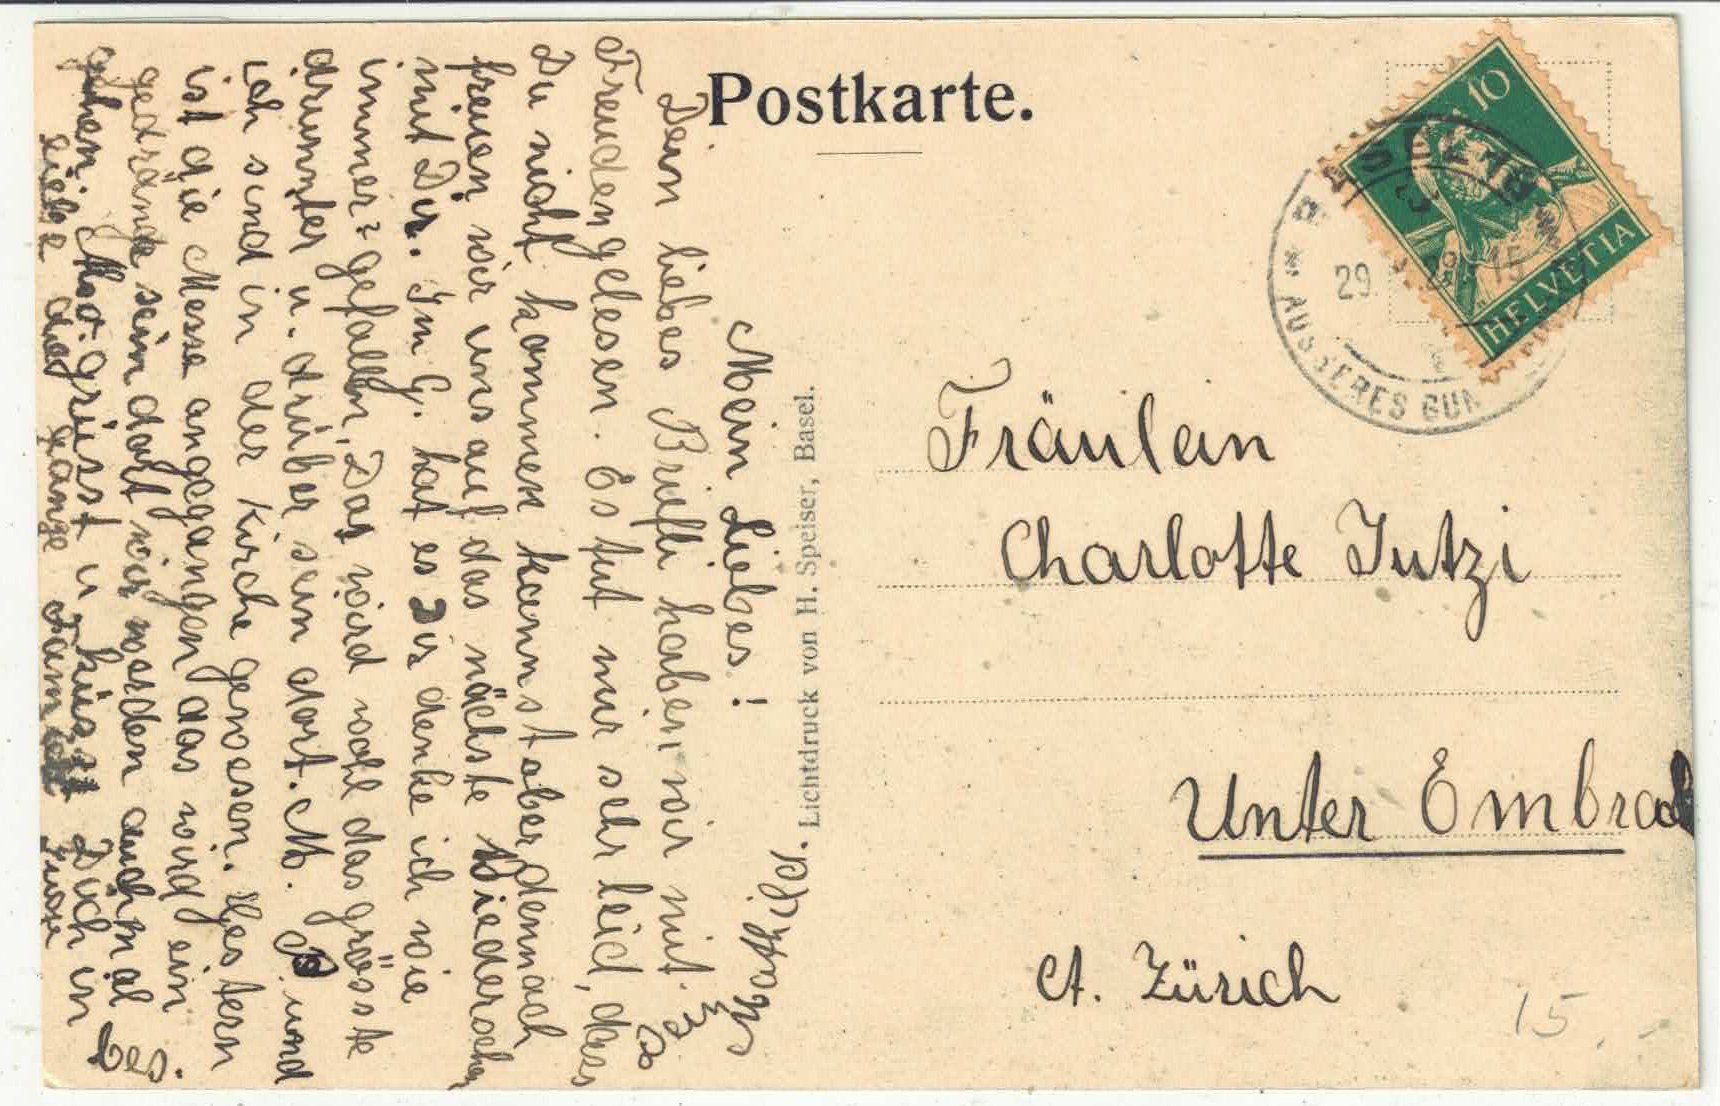 Postkarte.
10
HELVETIA
BASEL
29
AUSSERES
Fräulein
Charlotte Jutzi
Unter Embrach
Ct. Zürich
15.-
Lichtdruck von H. Speiser, Basel.
Mein Liebes!
Dein liebes Briefli haben wir mit
Freuden gelesen. Es tut mir sehr leid, dass
Du nicht kommen kannst aber dennach
freuen wir uns auf das nächste Wiedersehen
mit Dir. In G. hat es Dir denke ich wie
immer gefallen, Das wird wohl das grösste
drunnter u. drüber sein dort. M. P. und
ich sind in der Kirche gewesen. Gestern
ist die Messe angegangen das wird ein
gedränge sein dort wir werden auch mal
gehen. Also grüsst u. küsst Dich in
Liebe die ganze Familie
Mathilde.